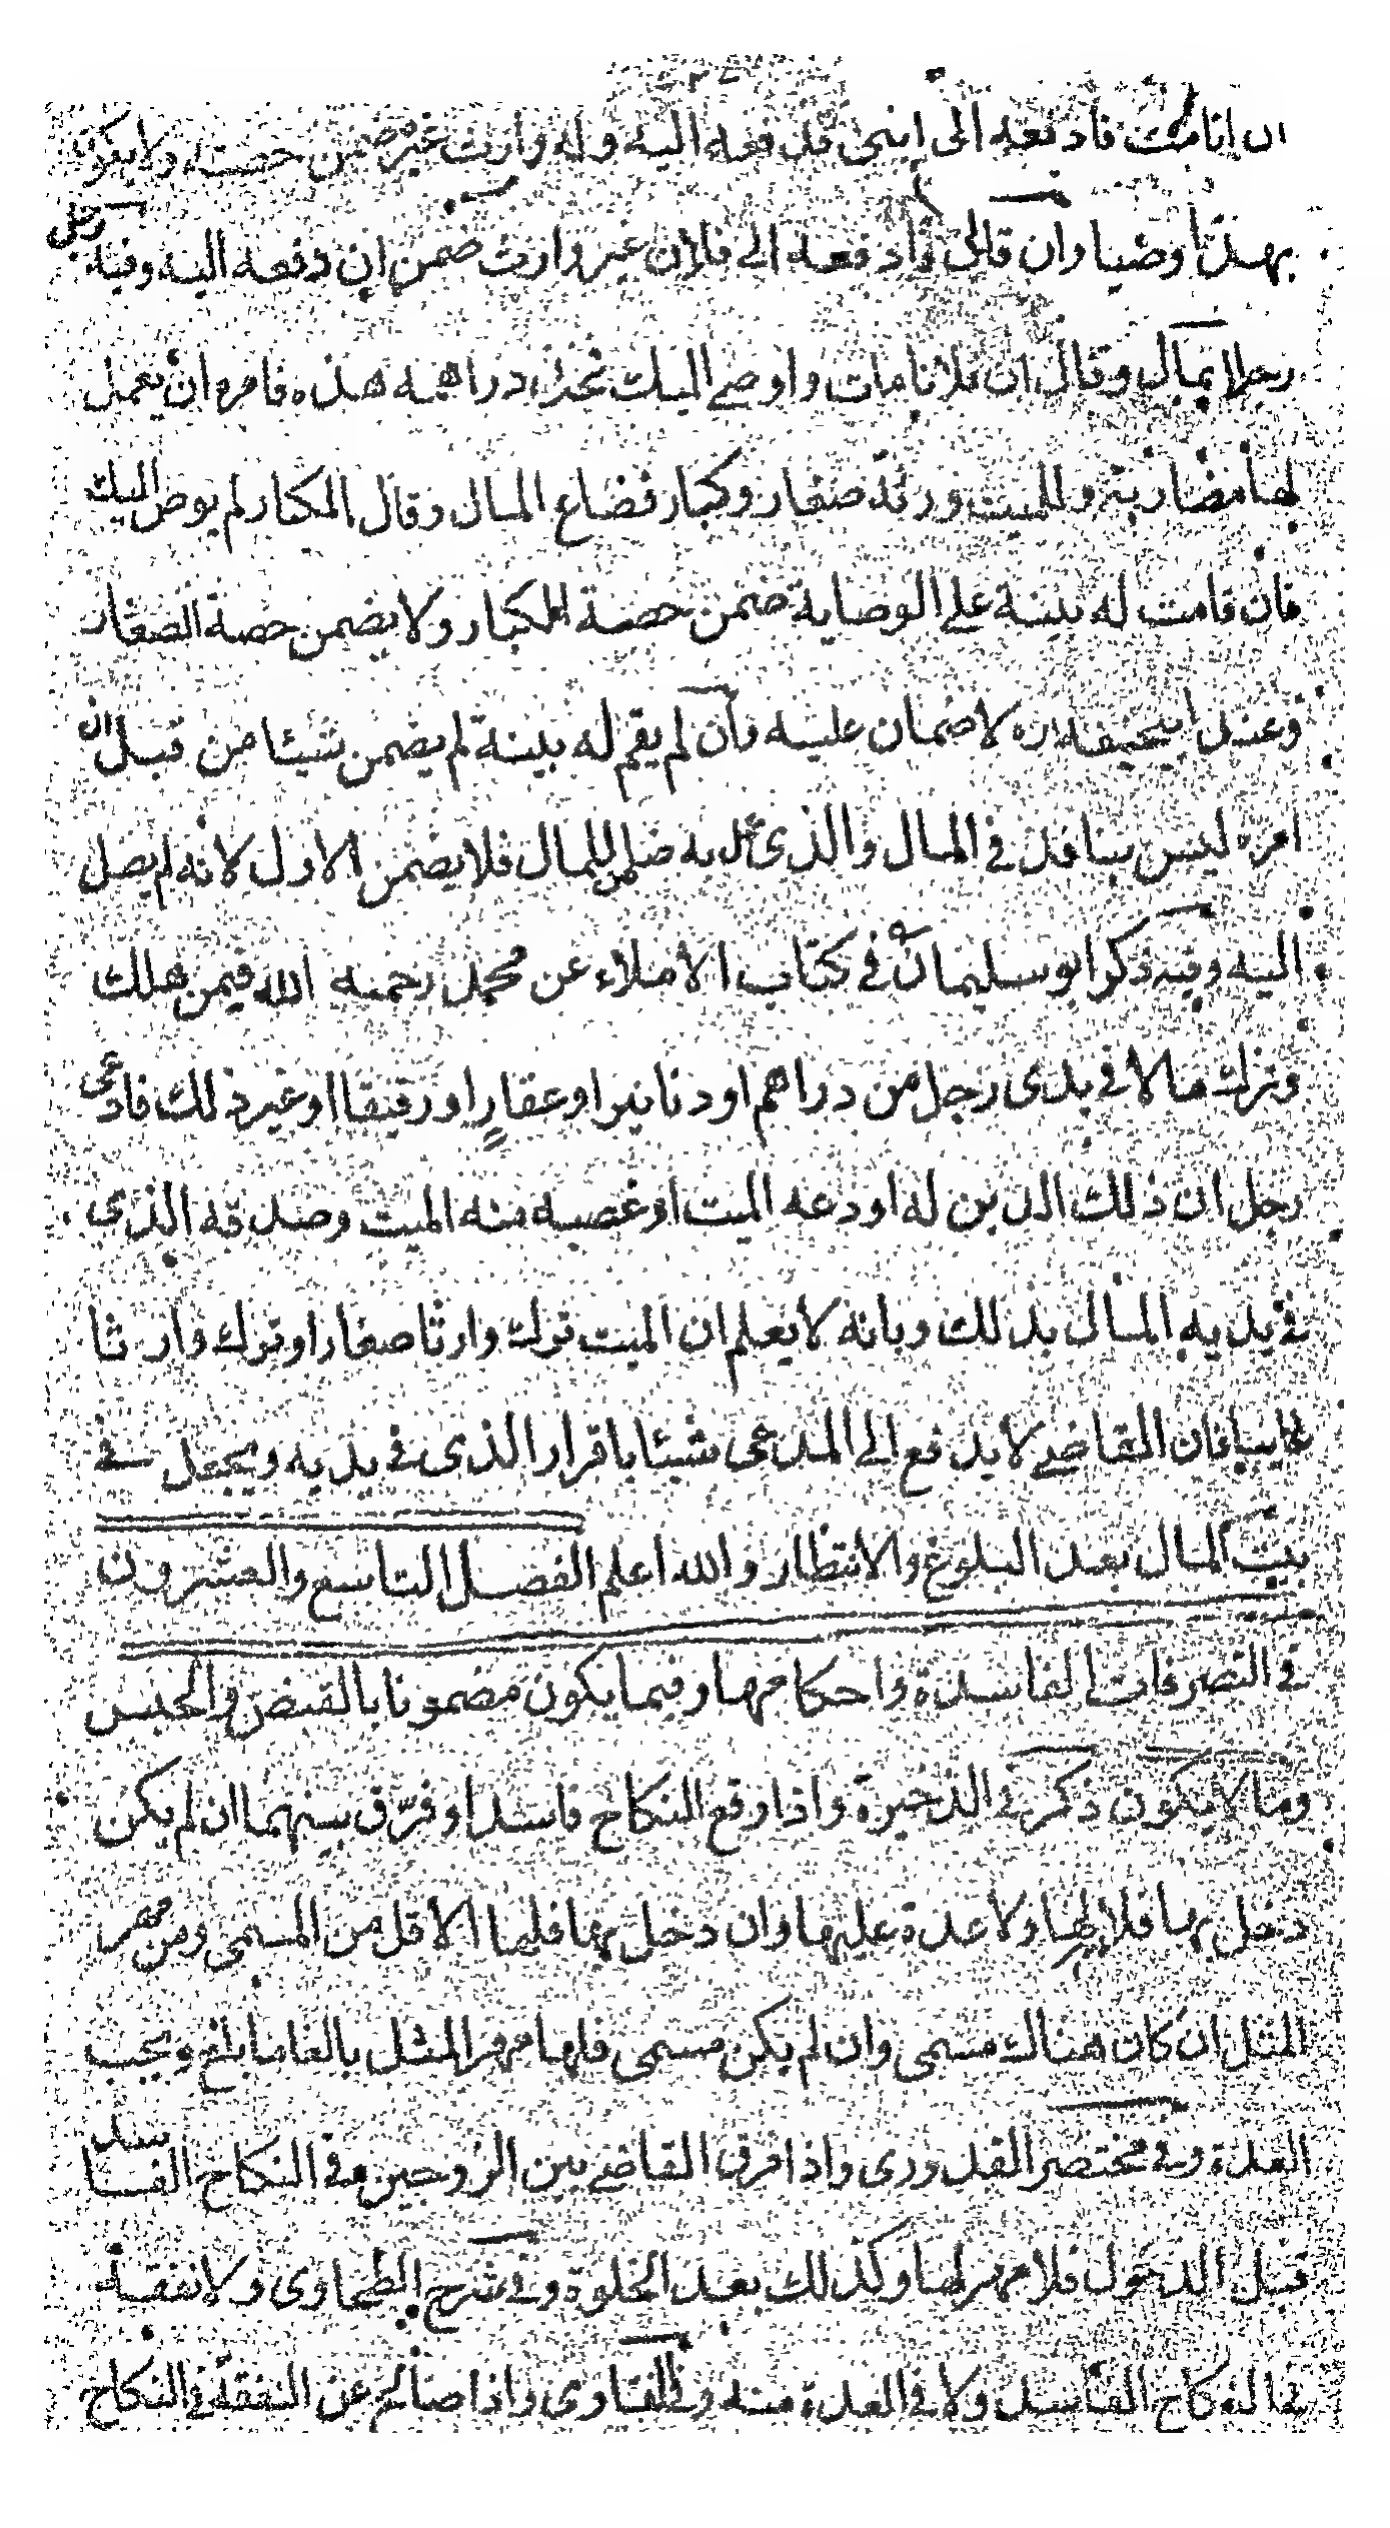 ان انا مت فادفعه الى ابنى فدفعه اليه وله وارث غيره ضمن حصته ولا يكون
بهذا وصيا وان قال وادفعه الى فلان غير وارث ضمن ان دفعه اليه وفيه رجل
رجلا بمال وقال ان فلانا مات واوصى اليك بهذه دراهمه هذه فامره ان يعمل
لها مضاربة وللميت ورثة صغار وكبار فضاع المال وقال الكبار لم يوص اليك
فان قامت له بينة على الوصاية ضمن حصة الكبار ولا يضمن حصة الصغار
وعند ابيحنيفه ره لا ضمان عليه فان لم يقم له بينة لم يضمن شيئا من قبل ان
امره ليس بنافذ فى المال والذى عمل به ضمن للمال فلا يضمن الاول لانه لم يصل
اليه وفيه ذكر ابو سليمان فى كتاب الاملاء عن محمد رحمه الله فيمن هلك
وترك مالا فى يدى رجل من دراهم او دنانير او عقار او رقيقا او غير ذلك فادعى
رجل ان ذلك الدين له اودعه الميت او غصبه منه الميت وصدقه الذى
فى يديه المال بذلك وبانه لا يعلم ان الميت ترك وارثا صغارا وترك وارثا
غايبا فان القاضى لا يدفع الى المدعى شيئا باقرار الذى فى يديه ويجعل فى
بيت المال بعد البلوغ والانتظار والله اعلم الفصل التاسع والعشرون
فى التصرفات الفاسدة واحكامها وفيما يكون مضمونا بالقبض والحبس
وما لا يكون ذكر فى الذخيرة واذا وقع النكاح فاسدا وفرق بينهما ان لم يكن
دخل بها فلا مهر لها ولا عدة عليها وان دخل بها فلها الاقل من المسمى ومن مهر
المثل ان كان هناك مسمى وان لم يكن مسمى فلها مهر المثل بالغا ما بلغ ويجب
العدة وفى مختصر القدورى واذا فرق القاضى بين الزوجين فى النكاح الفاسد
قبل الدخول فلا مهر لها وكذلك بعد الخلوة وفى شرح الطحاوى ولا نفقة
فى النكاح الفاسد ولا فى العدة منه وفى الفتاوى واذا صالح عن النفقة فى النكاح